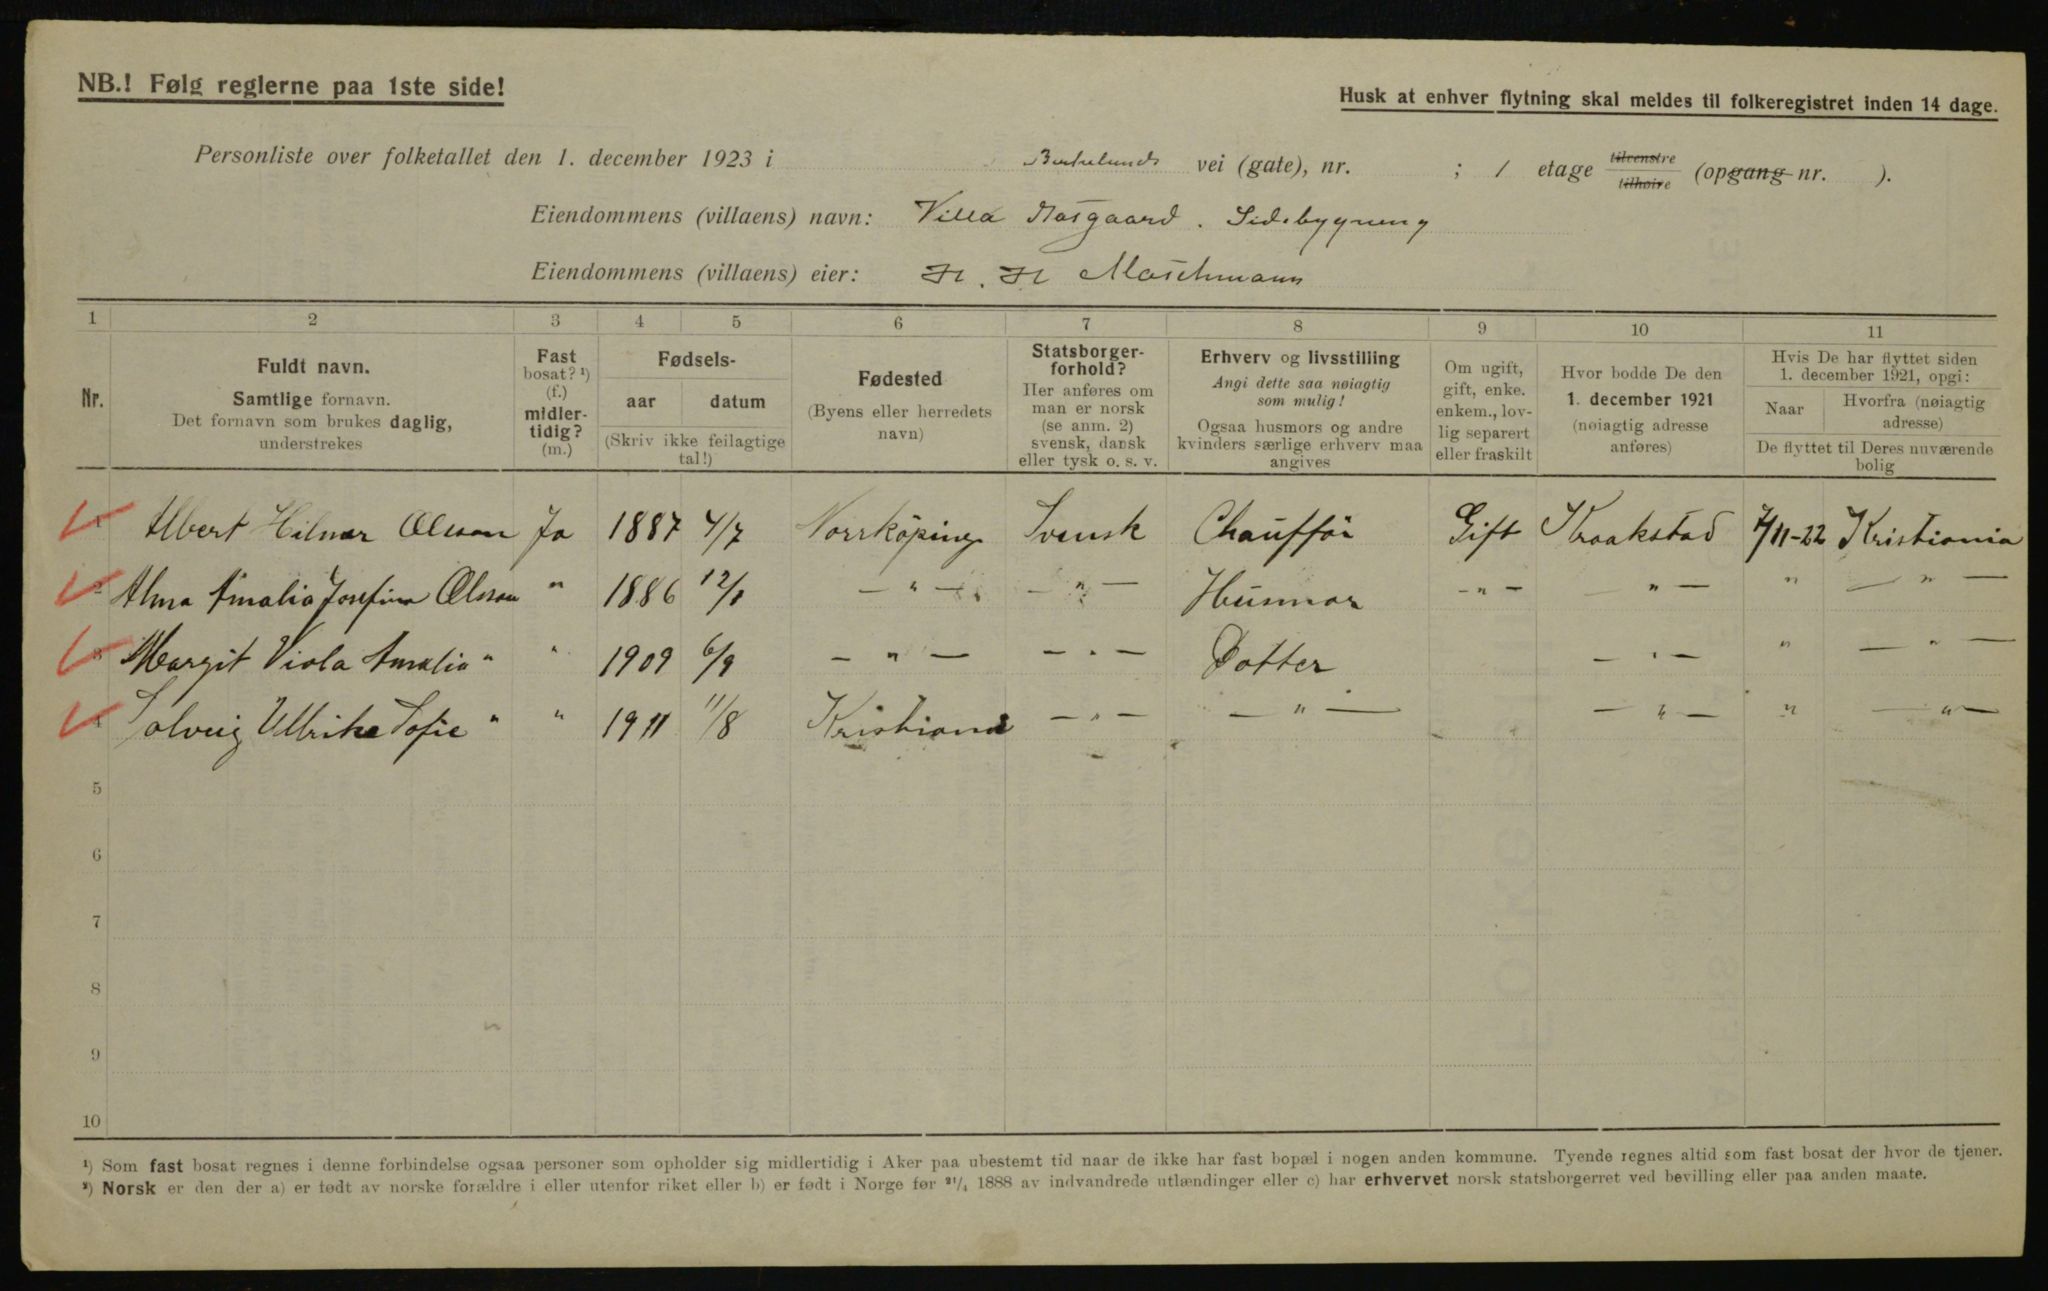 NB.! Følg reglerne paa 1ste side!
Husk at enhver flytning skal meldes til folkeregistret inden 14 dage.
Personliste over folketallet den 1. december 1923 i vei (gate), nr. ; 1 etage tilvenstre tilhøire (opgang nr. ).
Eiendommens (villaens) navn: Villa Sidebygning
Eiendommens (villaens) eier: H. H Maschmann
1 2 3 4 5 6 7 8 9 10 11
Nr.
Fuldt navn.
Samtlige fornavn.
Det fornavn som brukes daglig,
understrekes
Fast
bosat? ¹)
(f.)
midler-
tidig?
(m.)
Fødsels-
aar datum
(Skriv ikke feilagtige
tal!)
Fødested
(Byens eller herredets
navn)
Statsborger-
forhold?
Her anføres om
man er norsk
(se anm. 2)
svensk, dansk
eller tysk o. s. v.
Erhverv og livsstilling
Angi dette saa nøiagtig
som mulig!
Ogsaa husmors og andre
kvinders særlige erhverv maa
angives
Om ugift,
gift, enke.
enkem., lov-
lig separert
eller fraskilt
Hvor bodde De den
1. december 1921
(nøiagtig adresse
anføres)
Hvis De har flyttet siden
1. december 1921, opgi:
Naar
Hvorfra (nøiagtig
adresse)
De flyttet til Deres nuværende
bolig
1 Albert Hilmar Olsson Ja 1887 4/7 Norrköping Svensk Chaufför Gift Kraakstad 7/11-22 Kristiania
2 Alma Amalia Josefina Olsson " 1886 12/1 — " — — " — Husmor - " - — " — " — " —
3 Margit Viola Amalia " " 1909 6/9 — " — — " — Dotter — " — " — " —
4 Solveig Ullrike Sofie " " 1911 11/8 Kristiania — " — — " — — " — " — " —
5
6
7
8
9
10
¹) Som fast bosat regnes i denne forbindelse ogsaa personer som opholder sig midlertidig i Aker paa ubestemt tid naar de ikke har fast bopæl i nogen anden kommune. Tyende regnes altid som fast bosat der hvor de tjener.
²) Norsk er den der a) er født av norske forældre i eller utenfor riket eller b) er født i Norge før ²¹/₄ 1888 av indvandrede utlændinger eller c) har erhvervet norsk statsborgerret ved bevilling eller paa anden maate.